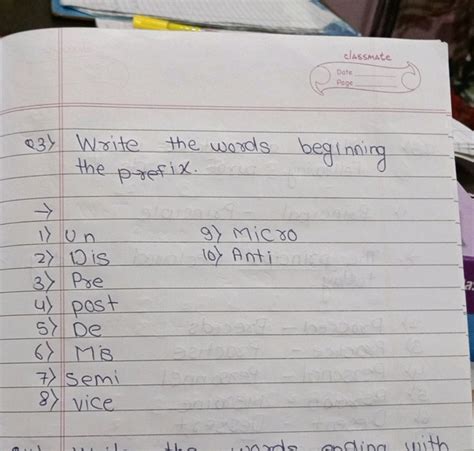 classmate
Date
Page
Q3) Write the words beginning
the prefix.
→
1) Un
9) Micro
2) Dis
10) Anti
3) Pre
4) post
5) De
6) Mis
7) Semi
8) vice
the words ending with